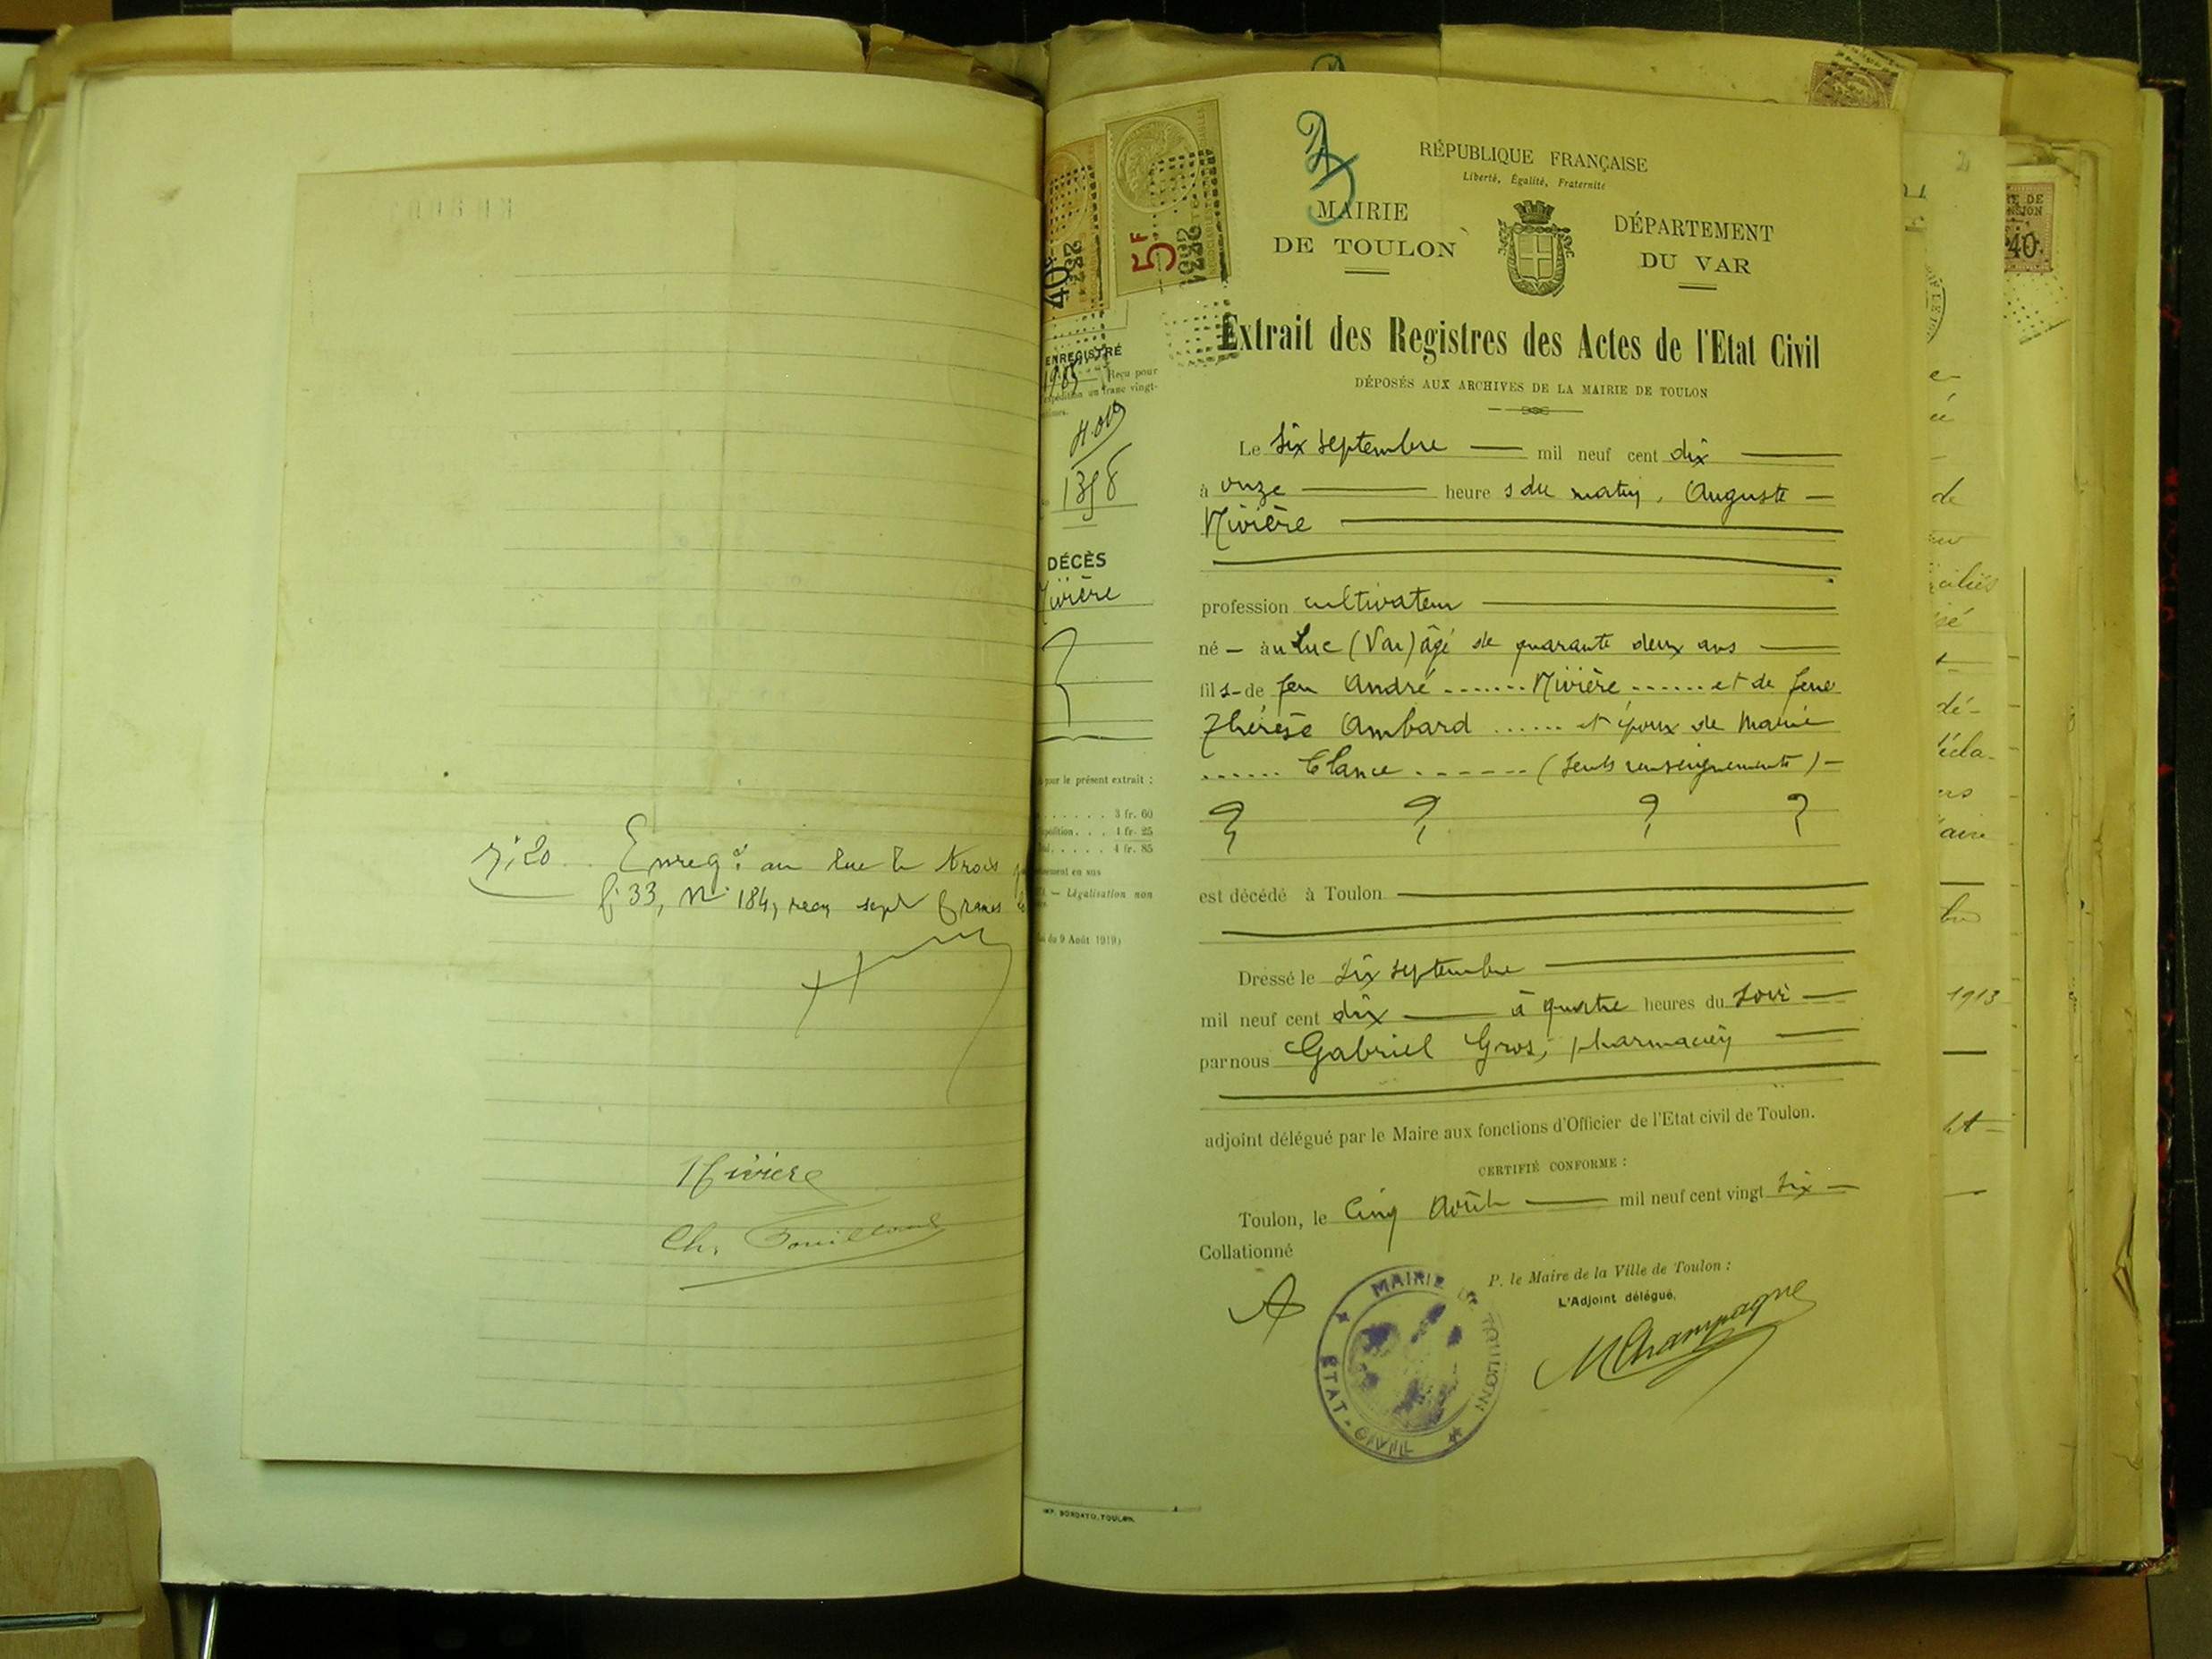 7,20 Enreg.é au Luc le trois
f° 33, N° 184, reçu sept francs
Nivière
Ch.
40
5F
ENREGISTRÉ
Reçu pour
expédition un franc vingt-
1358
DÉCÈS
Nivière
pour le présent extrait :
3 fr. 60
1 fr. 25
4 fr. 85
— Légalisation non
du 9 Août 1919)
IMP. BORDATO, TOULON.
RÉPUBLIQUE FRANÇAISE
Liberté, Égalité, Fraternité
MAIRIE
DE TOULON
DÉPARTEMENT
DU VAR
Extrait des Registres des Actes de l'Etat Civil
DÉPOSÉS AUX ARCHIVES DE LA MAIRIE DE TOULON
Le six septembre — mil neuf cent dix —
à onze — heure s du matin, Auguste —
Nivière —
profession cultivateur —
né — au Luc (Var) âgé de quarante deux ans —
fils de feu André ....... Nivière ...... et de feue
Thérèse Ambard ...... et époux de Marie
...... Clance ...... (seuls renseignements) —
est décédé à Toulon —
Dressé le six septembre —
mil neuf cent dix — à quatre heures du soir —
par nous Gabriel Gros, pharmacien —
adjoint délégué par le Maire aux fonctions d'Officier de l'Etat civil de Toulon.
CERTIFIÉ CONFORME :
Toulon, le cinq Août — mil neuf cent vingt six —
Collationné
P. le Maire de la Ville de Toulon :
L'Adjoint délégué,
MChampagne
MAIRIE DE TOULON
ETAT-CIVIL
40
de
dé-
écla-
1913